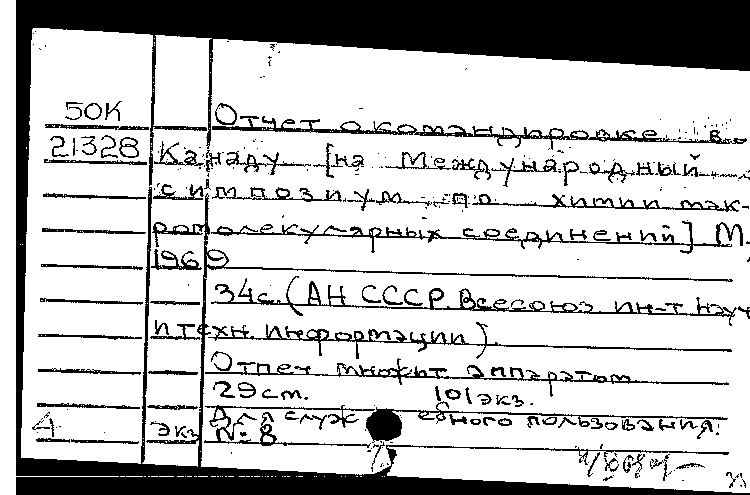 50К Отчет о командировке в
21328 Канаду [на Международный
симпозиум по химии мак-
ромолекулярных соединений] М.,
1969
34с. (АН СССР. Всесоюз ин-т науч
и техн. информации).
Отпеч множит. аппаратом
29см. 101экз.
Для служебного пользования.
4 экз №8